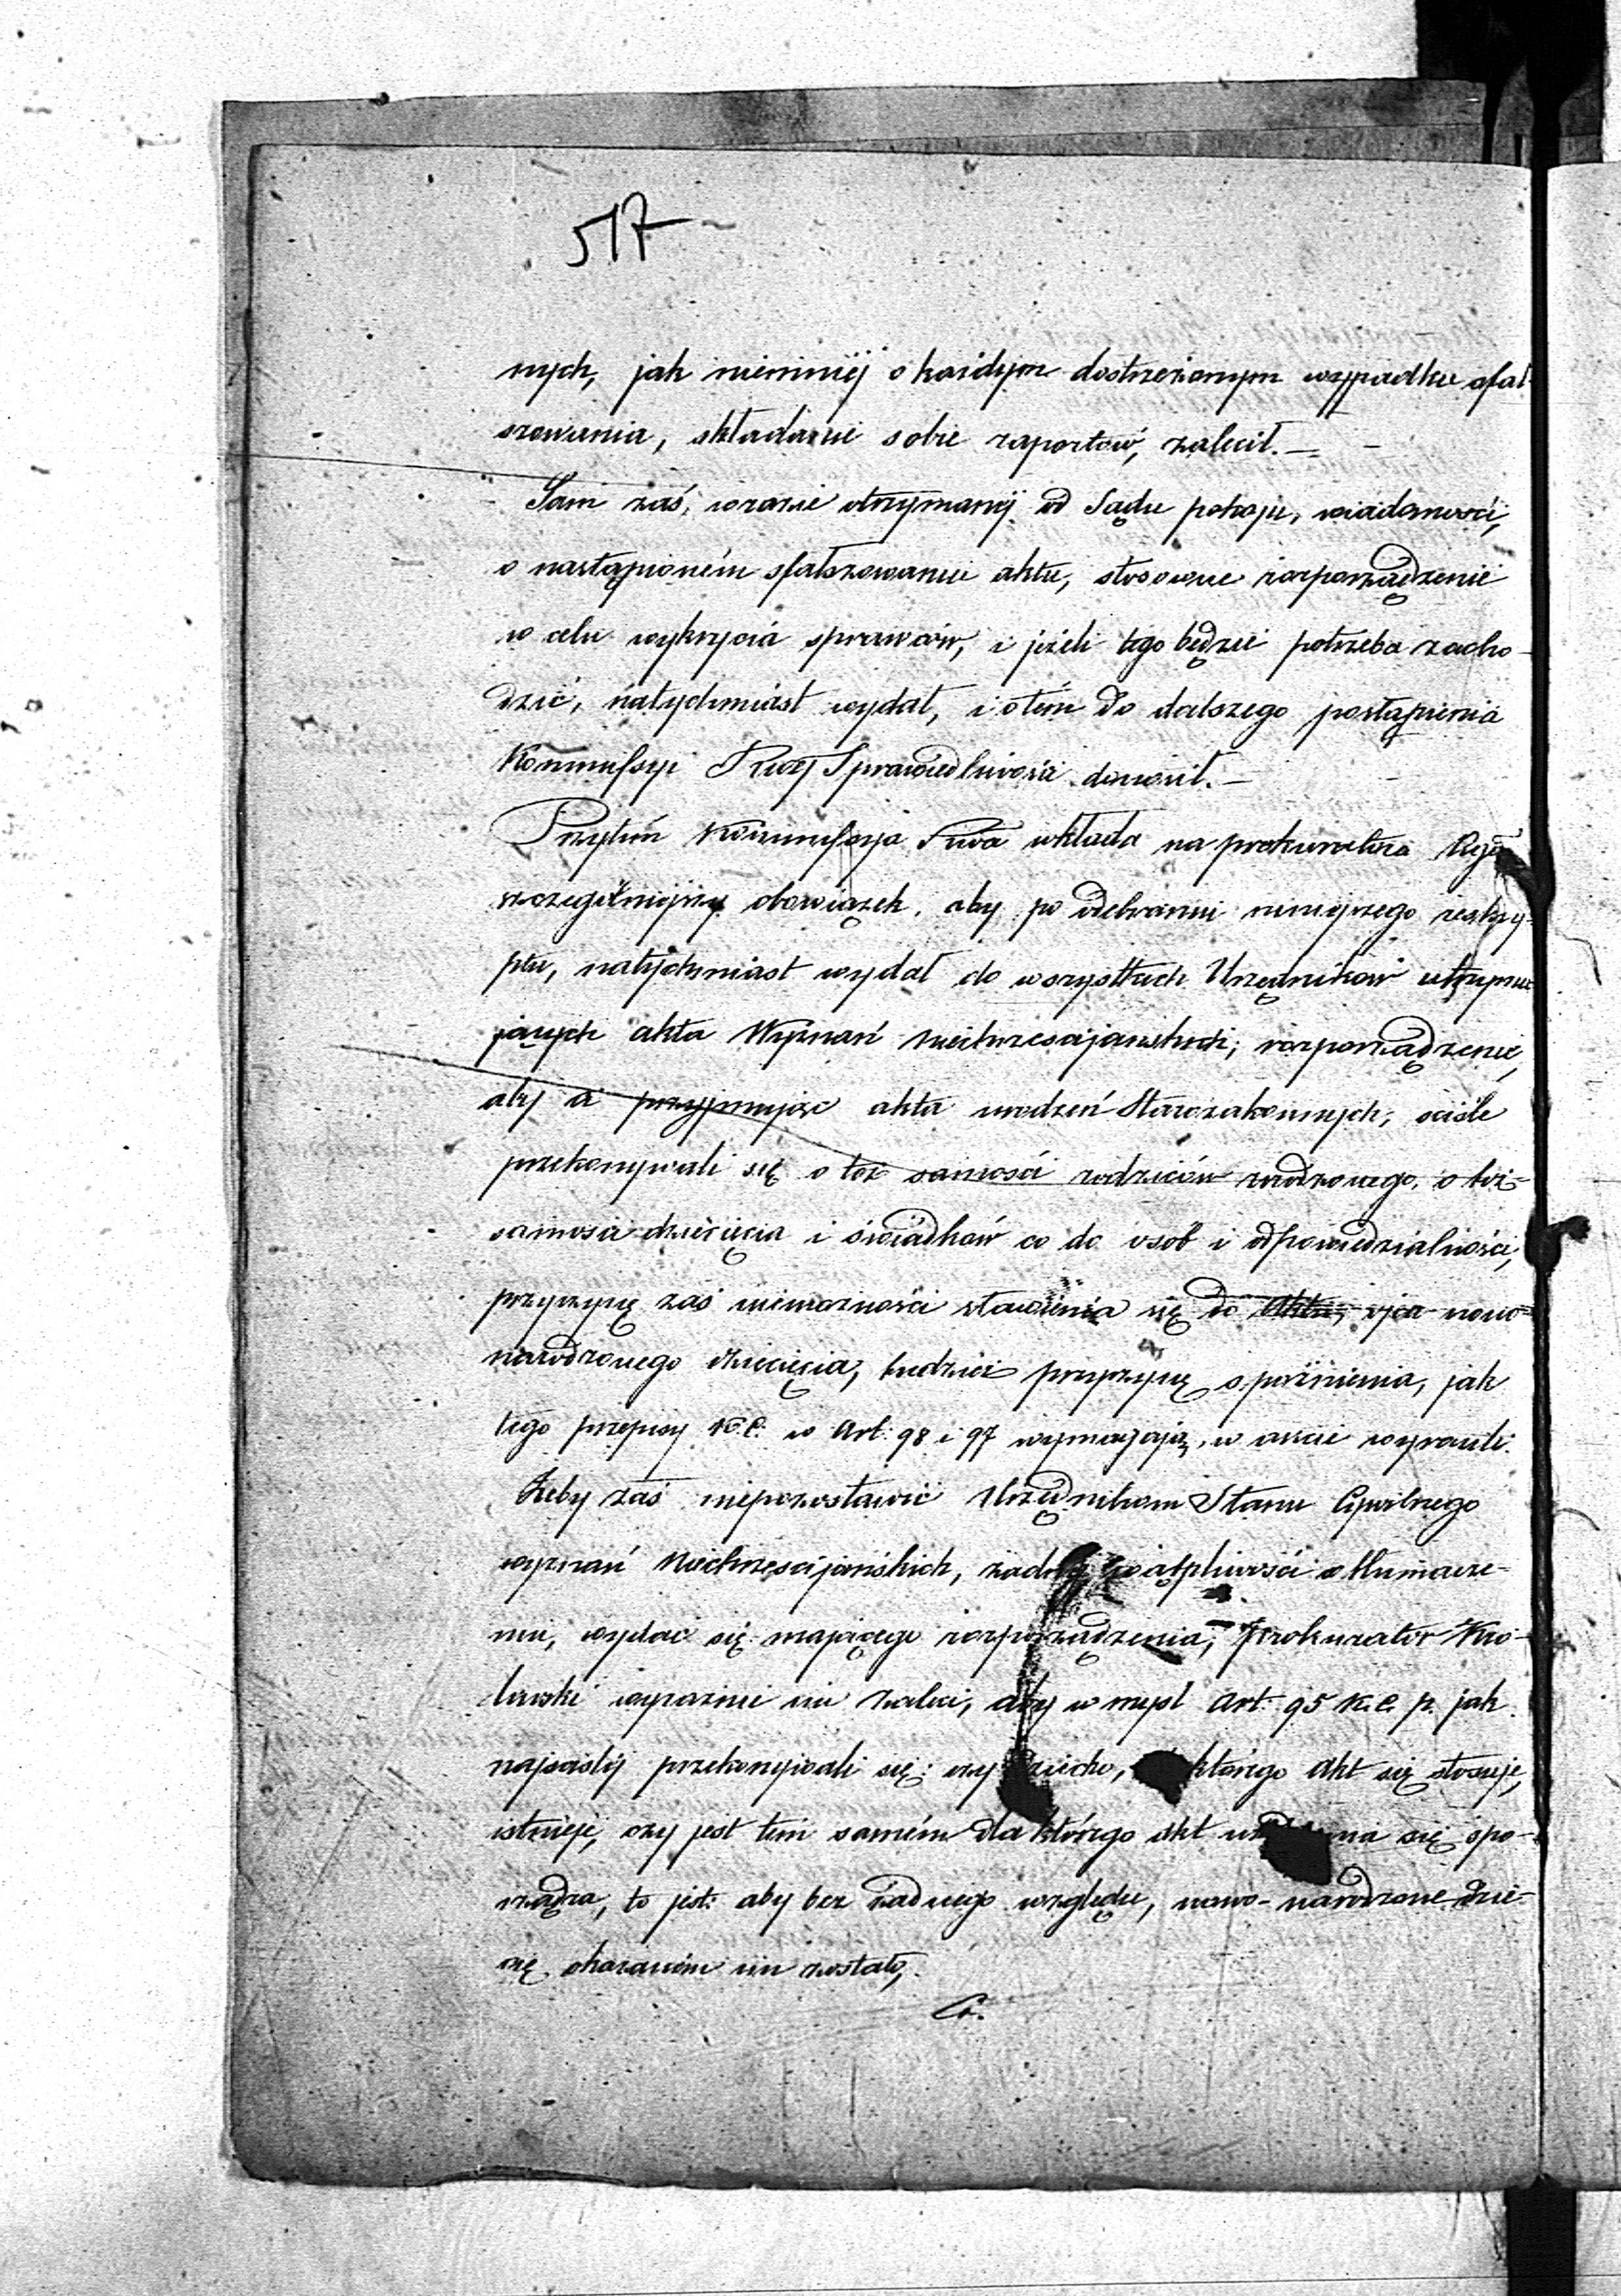 517
nych, jak niemniéj o każdym dostrzeżonym wypadku sfał-
szowania, składanie sobie raportów, zalecił.—
Sam zaś, wrazie otrzymanéj od Sądu pokoju, wiadomości,
o nastąpioném sfałszowaniu aktu, stosowne rozporządzenie
w celu wykrycia sprawców, i jeżeli tego będzie potrzeba zacho-
dzić, natychmiast wydał, i otém do dalszego postąpienia
Kommissyi Rząd Sprawiedliwości donosił.—
Przytém Kommissyja Rwa wkłada na prokuratora
szczególniejszy obowiązek, aby po odebraniu niniejszego reskry-
ptu, natychmiast wydał do wszystkich Urzędników utrzymu
jących akta Wyznań niechrzescijanskich, rozporządzenie,
aby ci przyjmując akta urodzeń Starozakonnych, sciśle
przekonywali się o toż samości rodziców zrodzonego, o toż-
samości dziecięcia i świadków co do osob i odpowiedzialności,
przyczynę zaś niemożności stawienia się do Aktu, ojca nowo-
narodzonego dziecięcia, tudzież przyczynę spóźnienia, jak
tego przepisy K.C. w Art: 98 i 97 wymagają, w akcie wyrazili.
Żeby zaś niepozostawić Urzędnikom Stanu Cywilnego
wyznań Niechrzescijańskich, żadnéj wątpliwości w tłumacze-
niu, wydać się mającego rozporządzenia, Prokurator Kró-
lewski wyraźnie im zaleci, aby w mysl Art. 95 K.C.P. jak
najsciśléj przekonywali się: czy dziecko, którego Akt się stosuje,
istnieje, czy jest tém samém dla którego akt się spo-
rządza, to jest: aby bez żadnego względu, nowo-narodzone dzie-
cię okazaném im zostało,
Co.